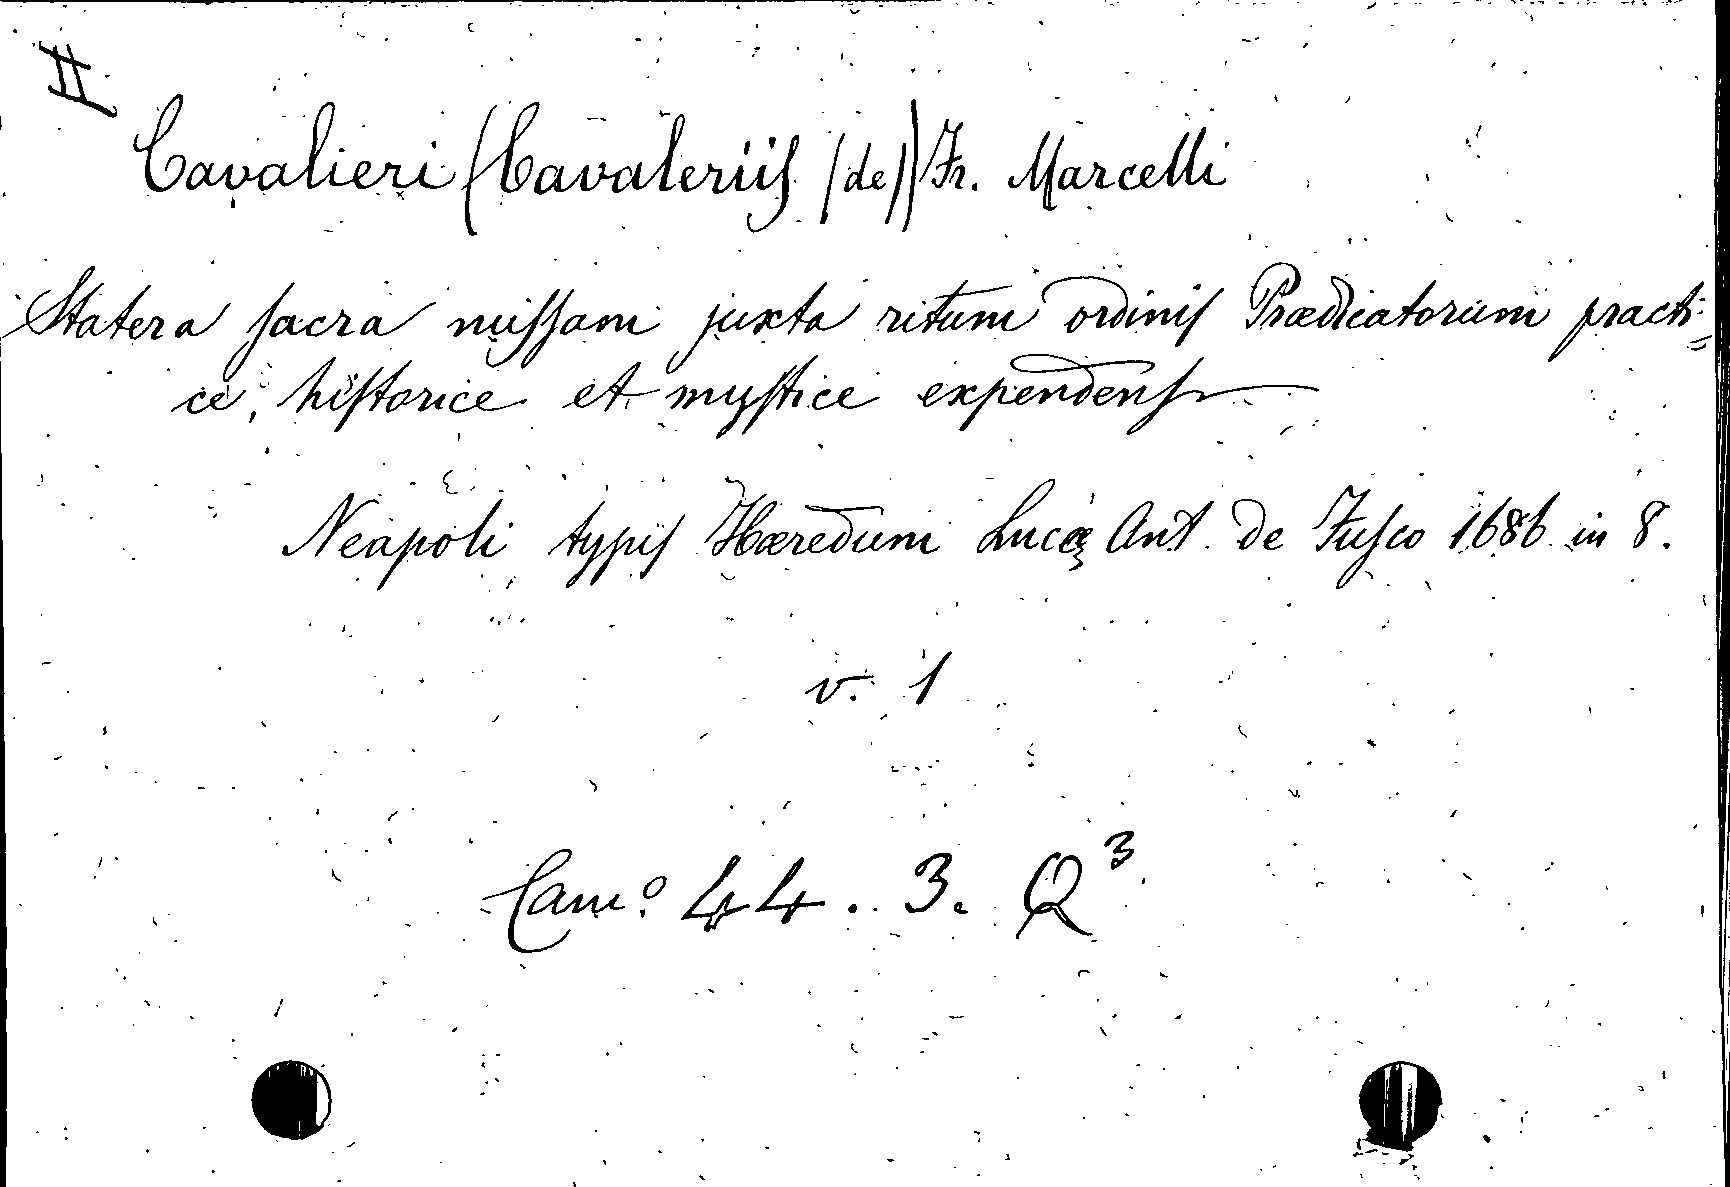 II
Cavalieri (Cavaleriis (de)) Fr. Marcelli
Statera sacra missam juxta ritum ordinis Prædicatorum practi=
ce, historice et mystice expendens
Neapoli typis Hæredum Lucæ Ant. de Fusco 1686 in 8.
v. 1
Cam.º 44. 3. Q³